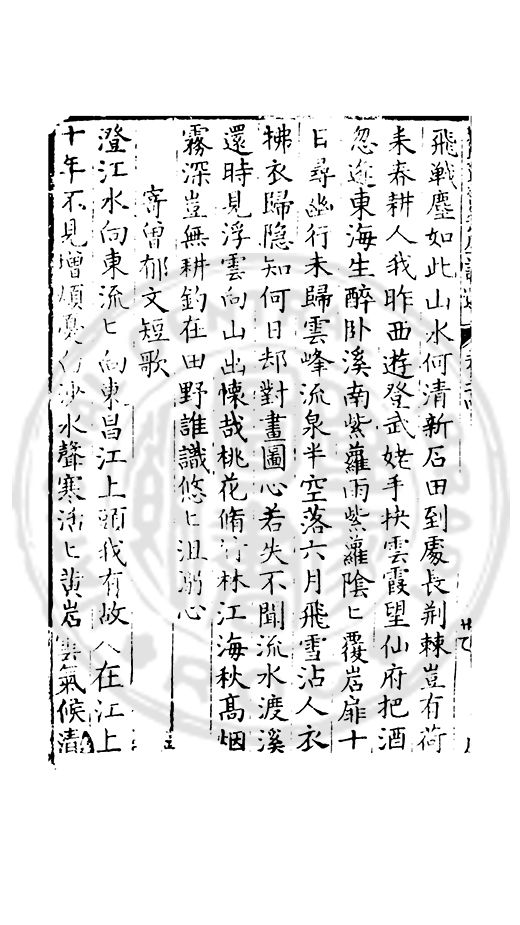 飛戰塵如此山水何清新石田到處長荆棘豈有荷
耒春耕人我昨西遊登武姥手抉雲霞望仙府把酒
忽迩東海生醉卧溪南紫蘿雨紫蘿陰匕覆岩扉十
日尋幽行未歸雲峰流泉半空落六月飛雪沾人衣
拂衣歸隐知何日却對畫圖心若失不聞流水渡溪
還時見浮雲向山出懷哉桃花脩竹林江海秋髙烟
霧深豈無耕釣在田野誰識悠匕沮溺心
寄曾郁文短歌
澄江水向東流匕向東昌江上頭我有故人在江上
十年不見增煩憂白沙水聲寒活匕黄岩雲氣候清